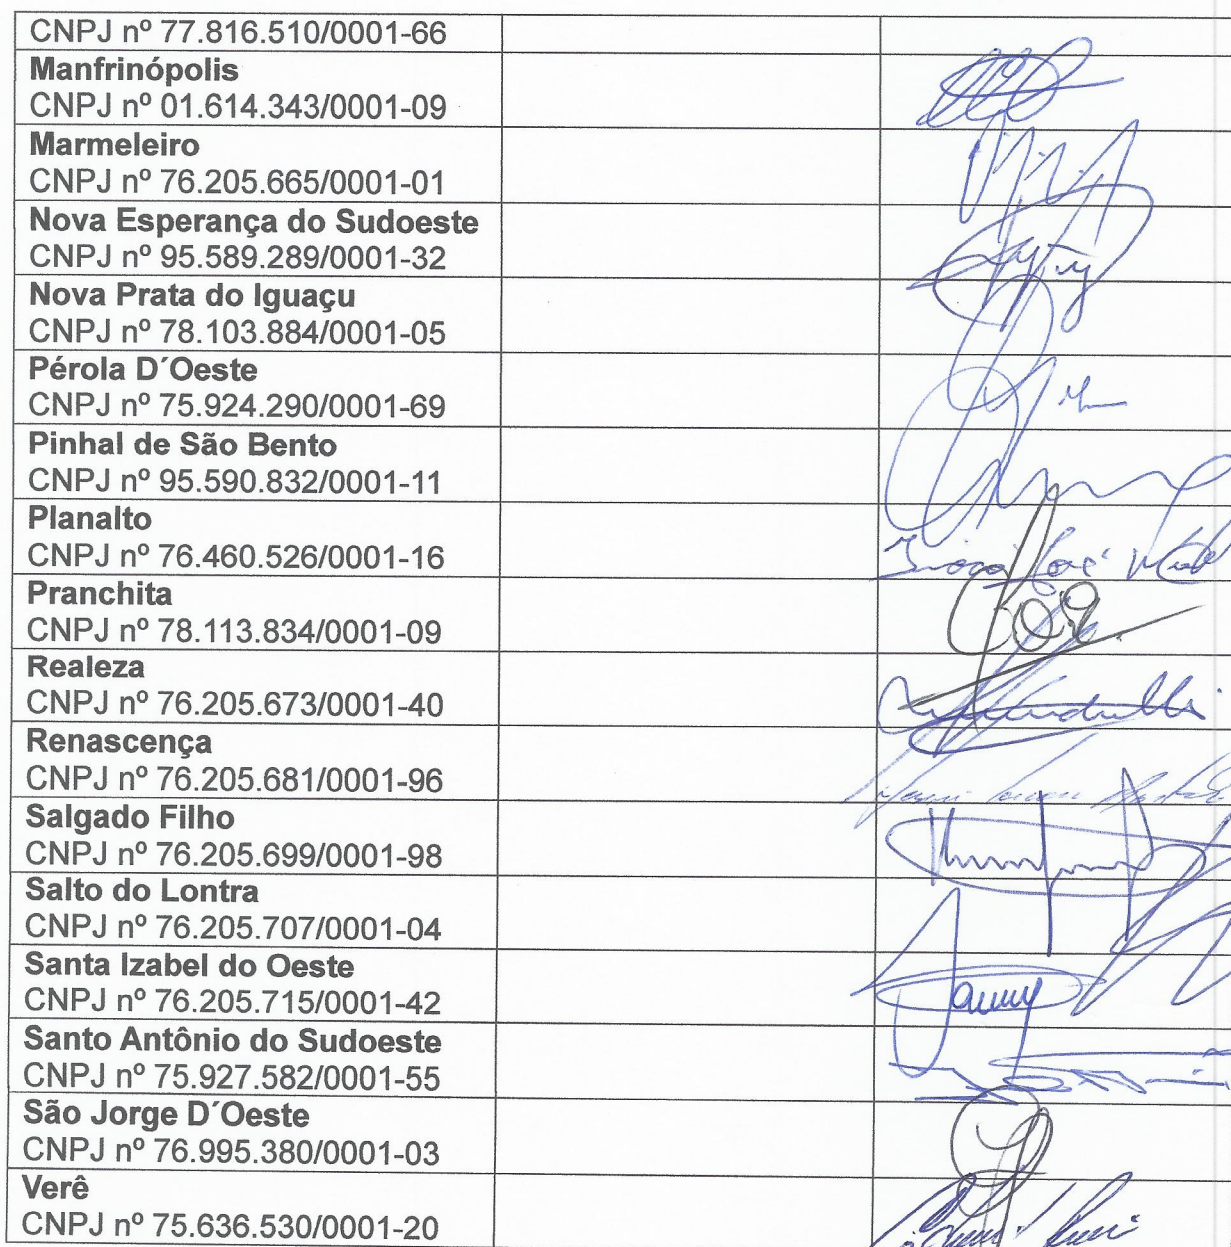 CNPJ nº 77.816.510/0001-66
Manfrinópolis
CNPJ nº 01.614.343/0001-09
Marmeleiro
CNPJ nº 76.205.665/0001-01
Nova Esperança do Sudoeste
CNPJ nº 95.589.289/0001-32
Nova Prata do Iguaçu
CNPJ nº 78.103.884/0001-05
Pérola D´Oeste
CNPJ nº 75.924.290/0001-69
Pinhal de São Bento
CNPJ nº 95.590.832/0001-11
Planalto
CNPJ nº 76.460.526/0001-16
Pranchita
CNPJ nº 78.113.834/0001-09
Realeza
CNPJ nº 76.205.673/0001-40
Renascença
CNPJ nº 76.205.681/0001-96
Salgado Filho
CNPJ nº 76.205.699/0001-98
Salto do Lontra
CNPJ nº 76.205.707/0001-04
Santa Izabel do Oeste
CNPJ nº 76.205.715/0001-42
Santo Antônio do Sudoeste
CNPJ nº 75.927.582/0001-55
São Jorge D´Oeste
CNPJ nº 76.995.380/0001-03
Verê
CNPJ nº 75.636.530/0001-20